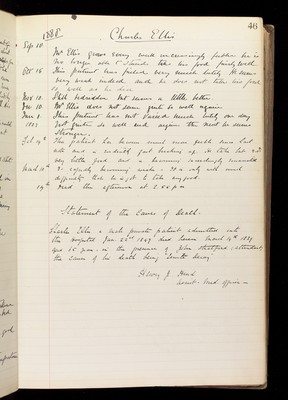 46
1888 Charles Ellis
Sep 10 Mr Ellis grows every and increasingly feeble he is
no longer able to stand takes his food fairly well.
Oct 15 This patient has failed very much lately. He seems
very weak indeed and he does not take his food
so well as he did.
Nov 10 Still bedridden but seems a little better.
Dec 10 Mr Ellis does not seem quite so well again
Jan 8 This patient has not varied much lately one day
1889 not quite so well and again the next he seems
stronger.
Feb 14th This patient has become much more feeble since last
note and is evidently fast breaking up. He takes but
very little food and is becoming exceedingly emaciated
Mar 10th is equally becoming weaker. It is only with much
difficulty that he is got to take any food.
14th Died this afternoon at 2.50 p.m.
Statement of the Causes of Death.
Charles Ellis a male private patient admitted into
this Hospital Jan 1849 died herein March 14th 1889
at 2.50 p.m. in the presence of attendant
the cause of his death being "Senile Decay"
Assist. Med Officer